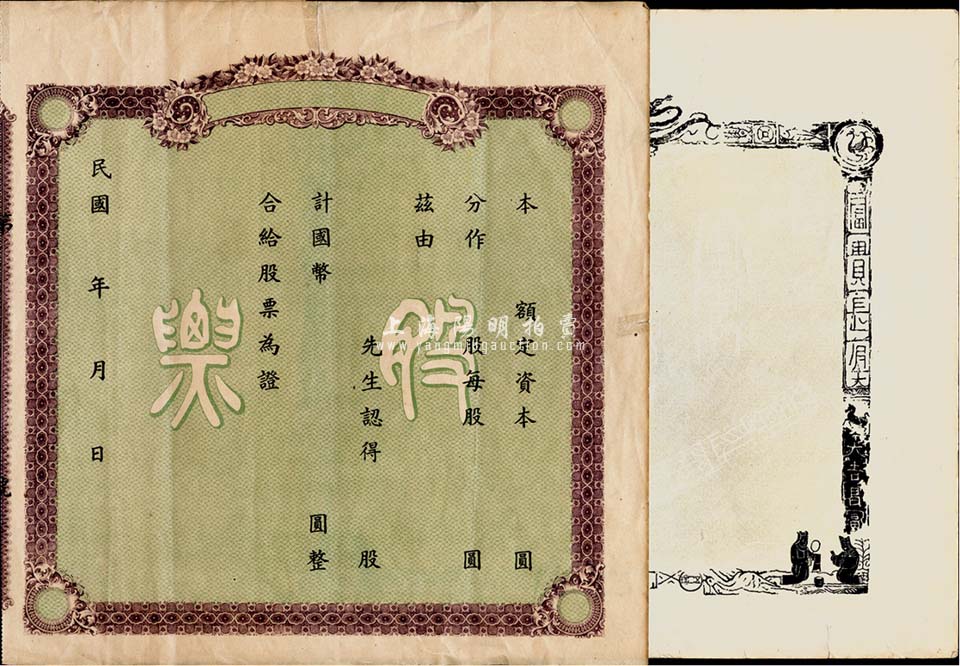 本 額定資本 圓
分作 股每股 圓
茲由
先生認得 股
計國幣 圓整
合給股票為證
民國 年 月 日
股票
第
號
上海陽明拍賣
www.yangmingauction.com
富貴長